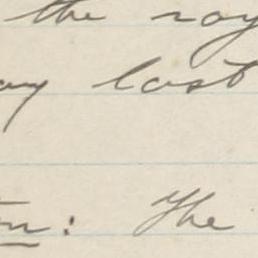 the roy
ay last
: The